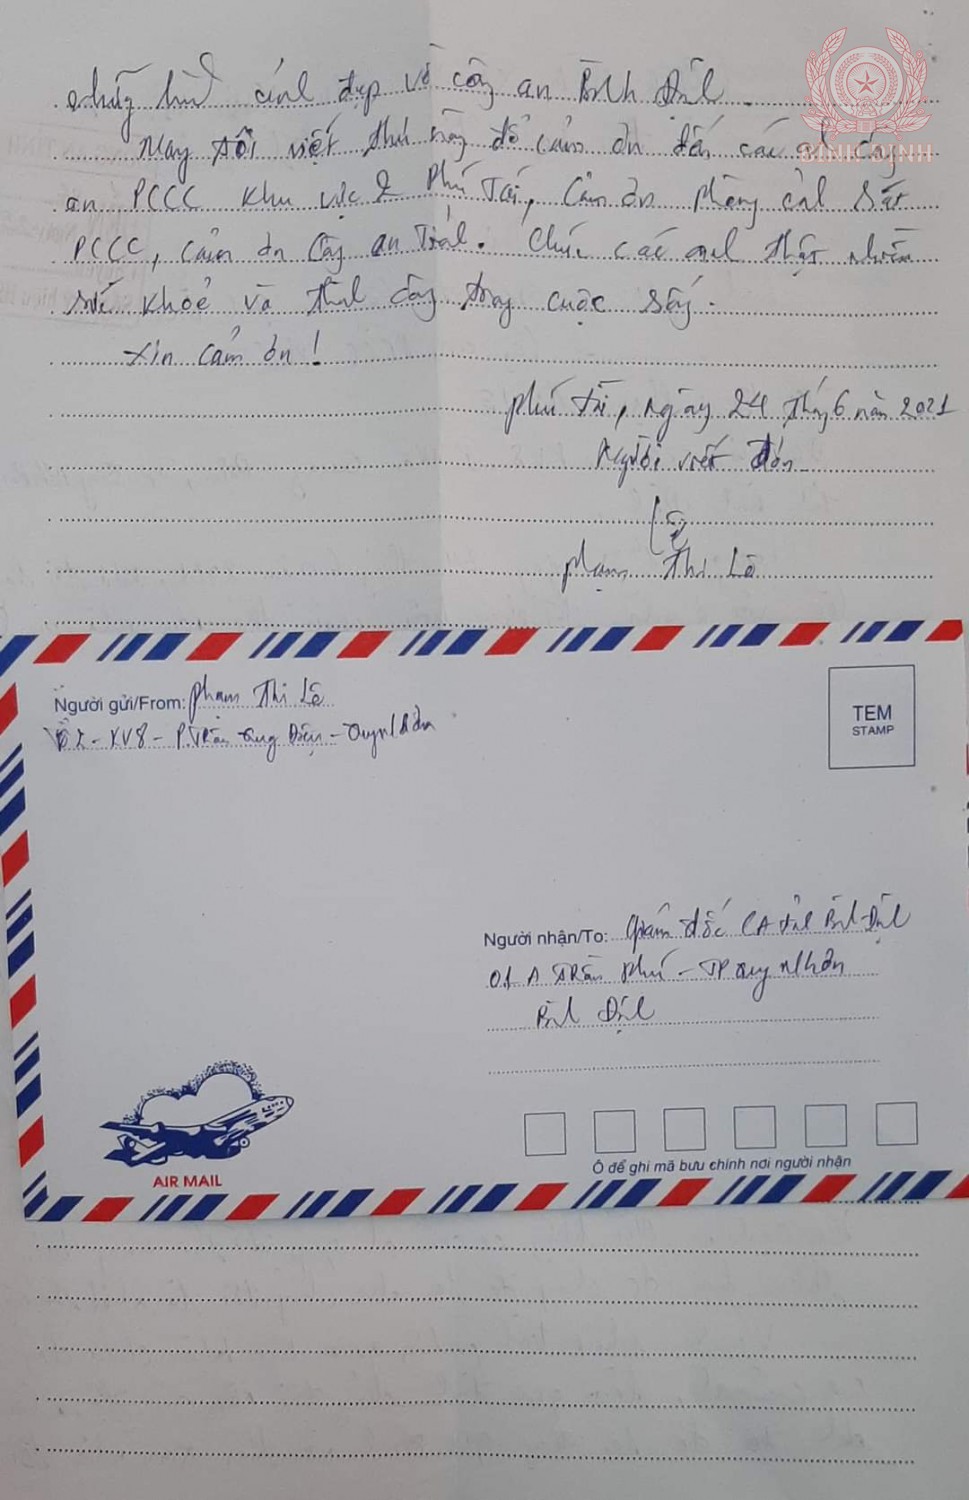 những hình ảnh đẹp về công an Bình Định.
Nay tôi viết thư này để cảm ơn đến các anh công
an PCCC khu vực 2 Phú Tài, Cảm ơn phòng cảnh sát
PCCC, cảm ơn Công an Tỉnh. Chúc các anh thật nhiều
sức khoẻ và thành công trong cuộc sống.
Xin cảm ơn!
Phú Tài, ngày 24 tháng 6 năm 2021
Người viết đơn
Lê
Phạm Thị Lê
BÌNH ĐỊNH
Người gửi/From: Phạm Thị Lê
- KV8 - P. Trần Quang Diệu - Quy Nhơn
TEM
STAMP
Người nhận/To: Giám đốc CA tỉnh Bình Định
01 A Trần Phú - TP Quy Nhơn
Bình Định
AIR MAIL
Ô để ghi mã bưu chính nơi người nhận